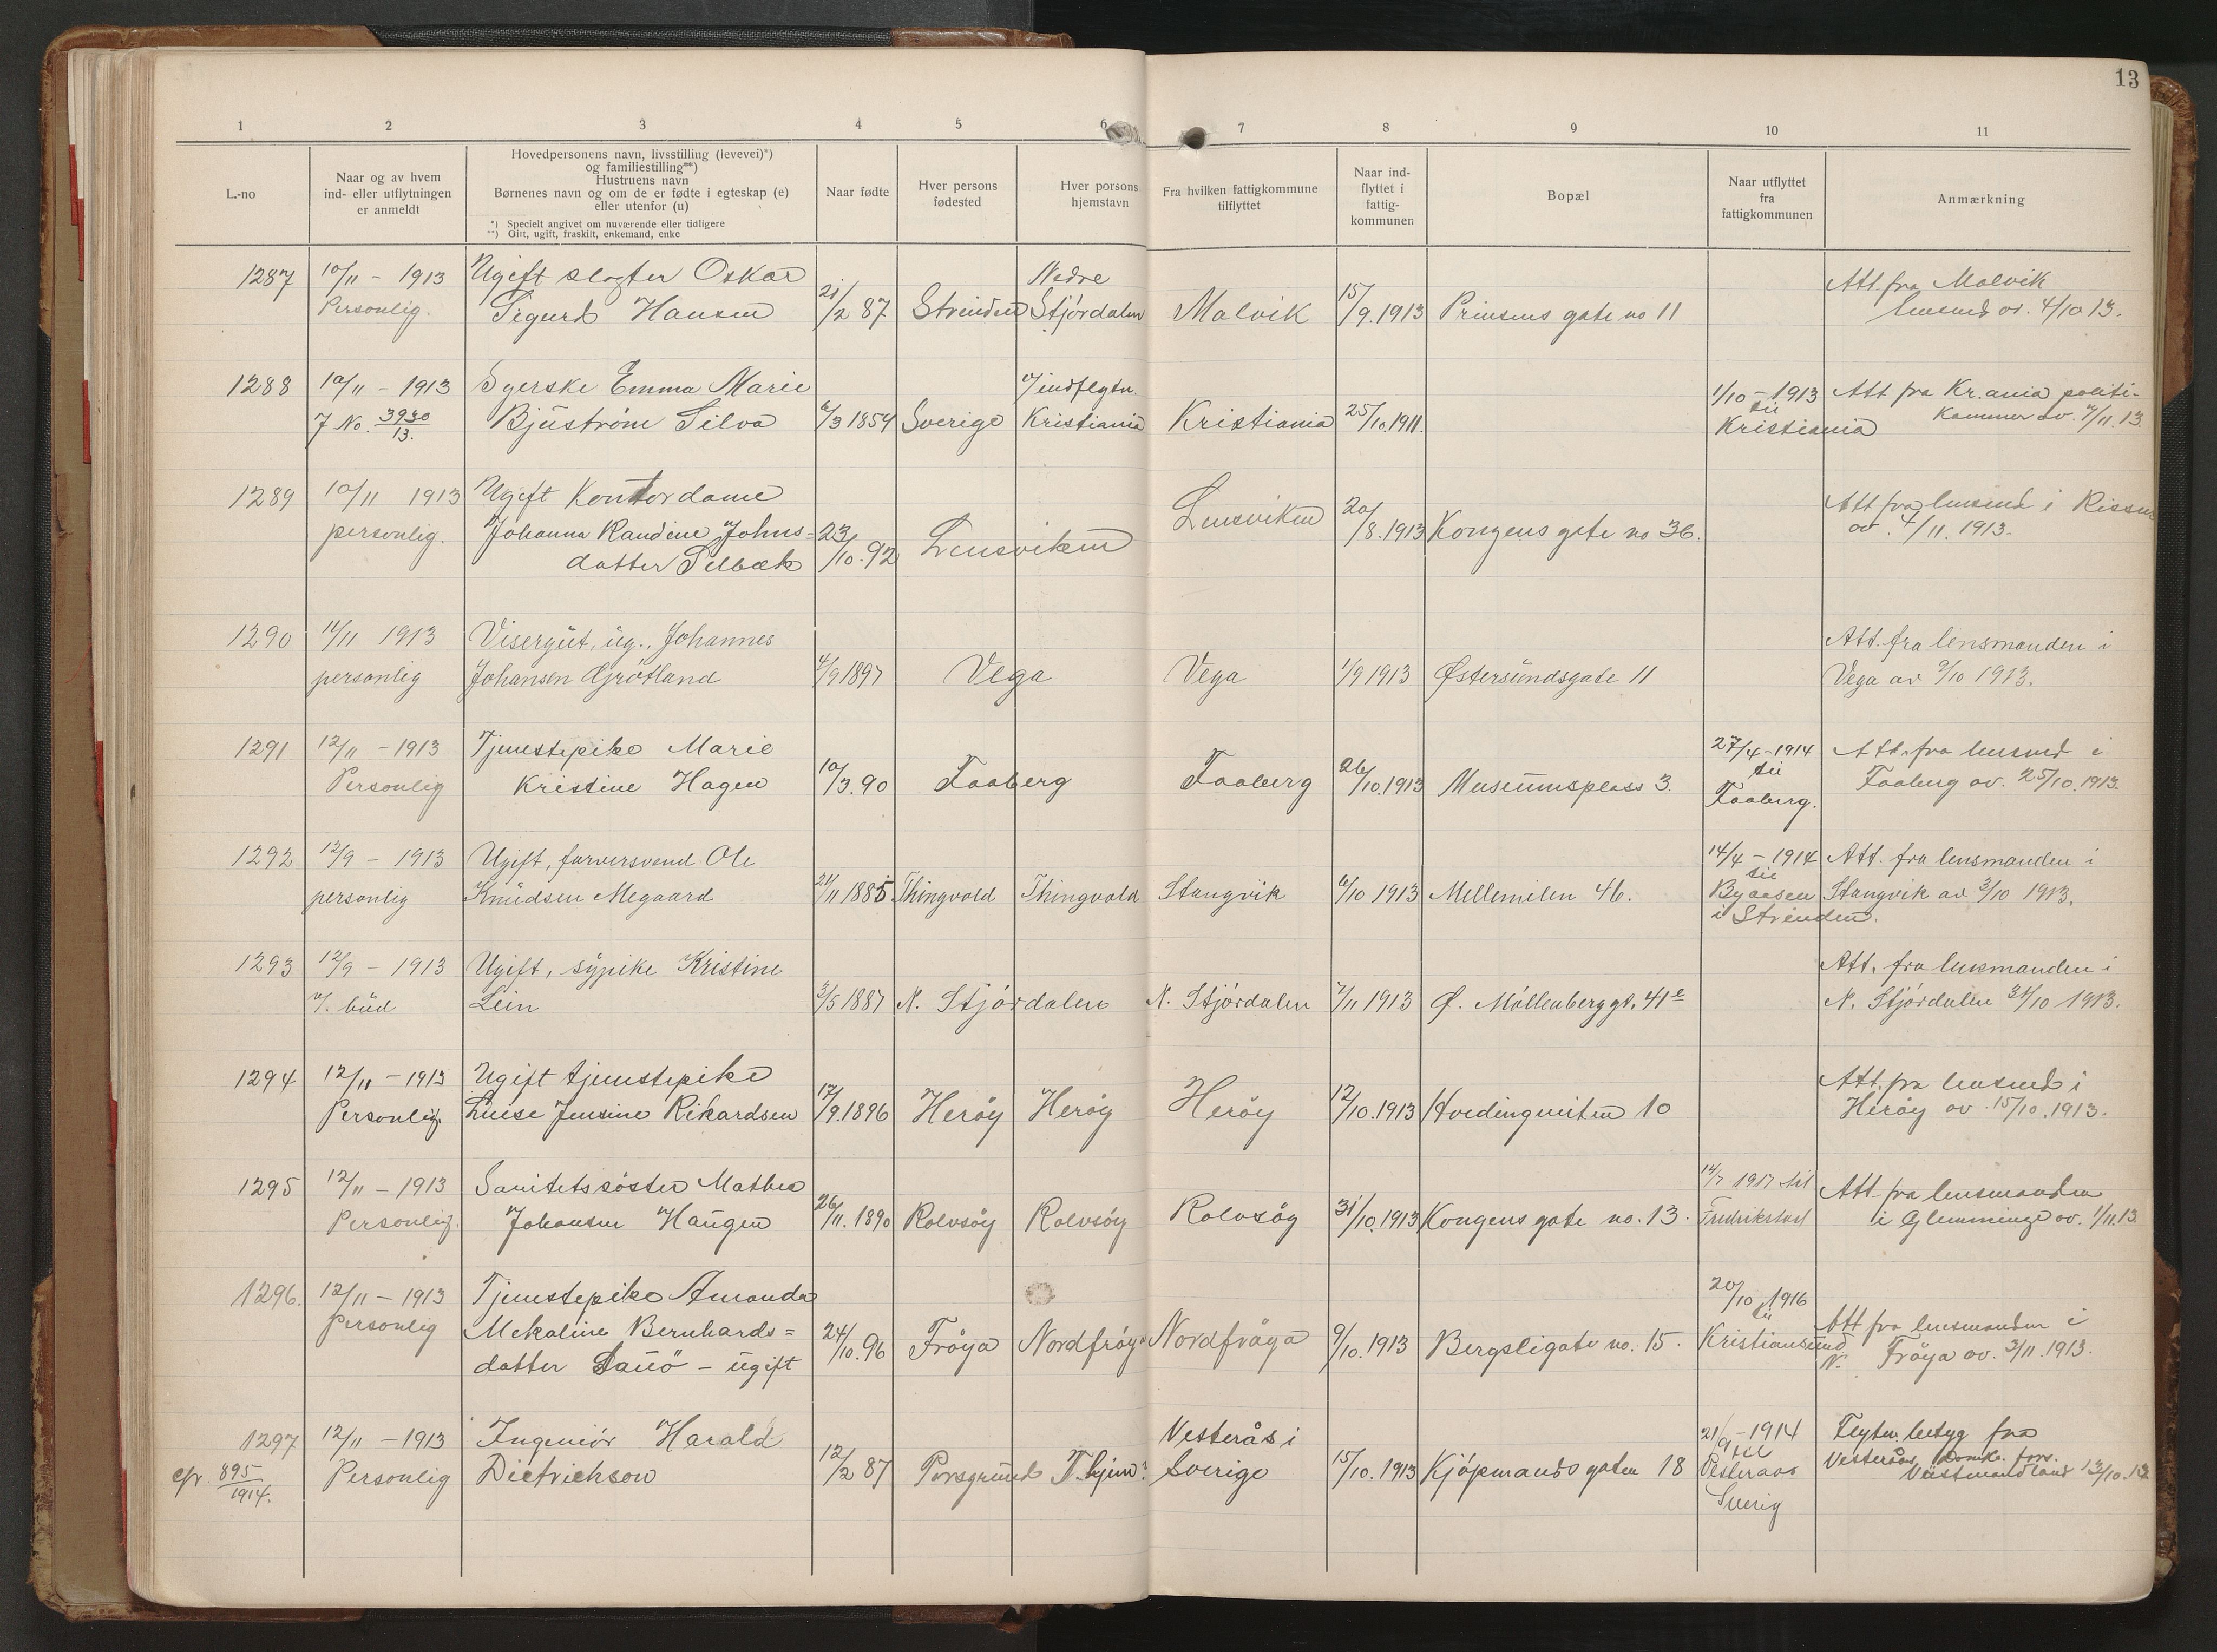 13
1 2 3 4 5 6 7 8 9 10 11
L.-no
Naar og av hvem
ind- eller utflytningen
er anmeldt
Hovedpersonens navn, livsstilling (levevei)*)
og familiestilling**)
Hustruens navn
Børnenes navn og om de er fødte i egteskap (e)
eller utenfor (u)
*) Specielt angivet om nuværende eller tidligere
**) Gift, ugift, fraskilt, enkemand, enke
Naar fødte
Hver persons
fødested
Hver porsons
hjemstavn
Fra hvilken fattigkommune
tilflyttet
Naar ind-
flyttet i
fattig-
kommunen
Bopæl
Naar utflyttet
fra
fattigkommunen
Anmærkning
1287 10/11 - 1913 Ugift slagter Oskar Nedre Att. fra Malvik
Personlig. Sigurd Hansen 21/2 87 Strinden Stjördalen Malvik 15/9.1913 Prinsens gate no 11 lensmd av. 4/10 13.
1288 10/11 - 1913 Syerske Emma Marie v/indflytn. 1/10 - 1913 Att fra Kr.ania politi-
J No. 3930/13. Bjuström Silva 6/3 1854 Sverige Kristiania Kristiania 25/10.1911. til Kristiania kammer av. 7/11.13.
1289 10/11 1913 Ugift Kontordame Lensviken 20/8.1913 Kongens gate no 36. Att fra lensmd i Rissen
personlig. Johanna Randine Johns= 23/10.92 Lensviken av. 4/11. 1913.
datter Selbæk
1290 11/11 1913 Visergut, ug., Johannes Att. fra lensmanden i
personlig Johansen Grötland 4/9 1897 Vega Vega 1/9 1913 Østersundsgate 11 Vega av 9/10 1913.
1291 12/11 - 1913 Tjenestepike Marie 27/4 - 1914 Att. fra lensmd i
Personlig Kristine Hagen 10/3.90 Faaberg Faaberg 26/10.1913 Museumsplass 3. til Faaberg. Faaberg av. 25/10.1913.
1292 12/9 - 1913 Ugift, farversvend Ole 14/4 - 1914 Att. fra lensmanden i
personlig Knudsen Megaard 21/11 1885 Thingvold Thingvold Stangvik 6/10 1913 Mellemilen 46. til Byaasen Stangvik av 3/10 1913.
i Strinden.
1293 12/9 - 1913 Ugift, sypike Kristine Att. fra lensmanden i
v/. bud Lein 3/5 1887 N. Stjördalen N. Stjördalen 7/11 1913 Ø. Möllenberggt. 41e N. Stjördalen 31/10 1913.
1294 12/11 - 1913 Ugift tjenestepike Att. fra lensmd i
Personlig. Luise Jensine Rikardsen 17/9.1896 Heröy Heröy Heröy 12/10.1913 Hvedingveiten 10 Heröy av 15/10.1913.
1295 12/11 - 1913 Sanitetssöster Mathea 14/7 1917 til Att fra lensmanden
Personlig. Johansen Haugen 26/11.1890 Rolvsöy Rolvsöy Rolvsöy 31/10.1913 Kongens gate no. 13. Fredrikstad i Glemminge av. 1/11.13.
1296. 12/11 - 1913 Tjenestepike Amanda 20/10 1916
Personlig Mekaline Bernhards= 24/10.96 Fröya Nordfröya Nordfröya 9/10.1913 Bergsligate no. 15. til Kristiansund N. Att fra lensmanden i
datter Sauö - ugift Fröya av. 3/11.1913.
1297 12/11 - 1913 Ingeniör Harald Vesterås i 21/9 - 1914 Flytn. betyg fra
cfr. 895/1914. Personlig Dietrichson 12/2 87 Porsgrund T.hjem? Sverige 15/10.1913 Kjöpmands gaten 18 til Vesteraas Vesterås Domk. förs.
Sverig Västmandland 13/10.13.